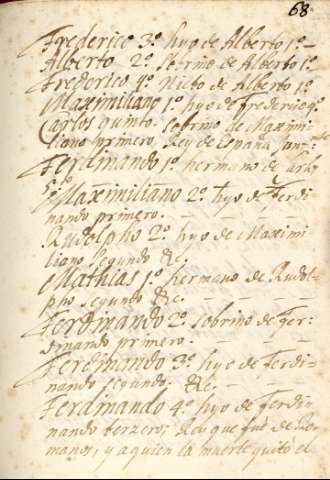 68
Frederico 3º hijo de Alberto 1º
Alberto 2º Sobrino de Alberto 1º
Frederico 4º Nieto de Alberto 1º
Maximiliano 1º hijo de frederico 4º
Carlos quinto sobrino de Maximi-
liano primero, Rey de España
Ferdinando 1º hermano de Carlos
5º
Maximiliano 2º hijo de Ferdi-
nando primero.
Rudolpho 2º hijo de Maximi-
liano segundo &c.
Mathias 1º hermano de Rudol-
pho segundo &c.
Ferdinando 2º sobrino de fer-
dinando primero.
Ferdinando 3º hijo de Ferdi-
nando segundo. &c.
Ferdinando 4º hijo de Ferdi-
nando terzero, Rey que fue de Ro-
manos, y a quien la muerte quitó el